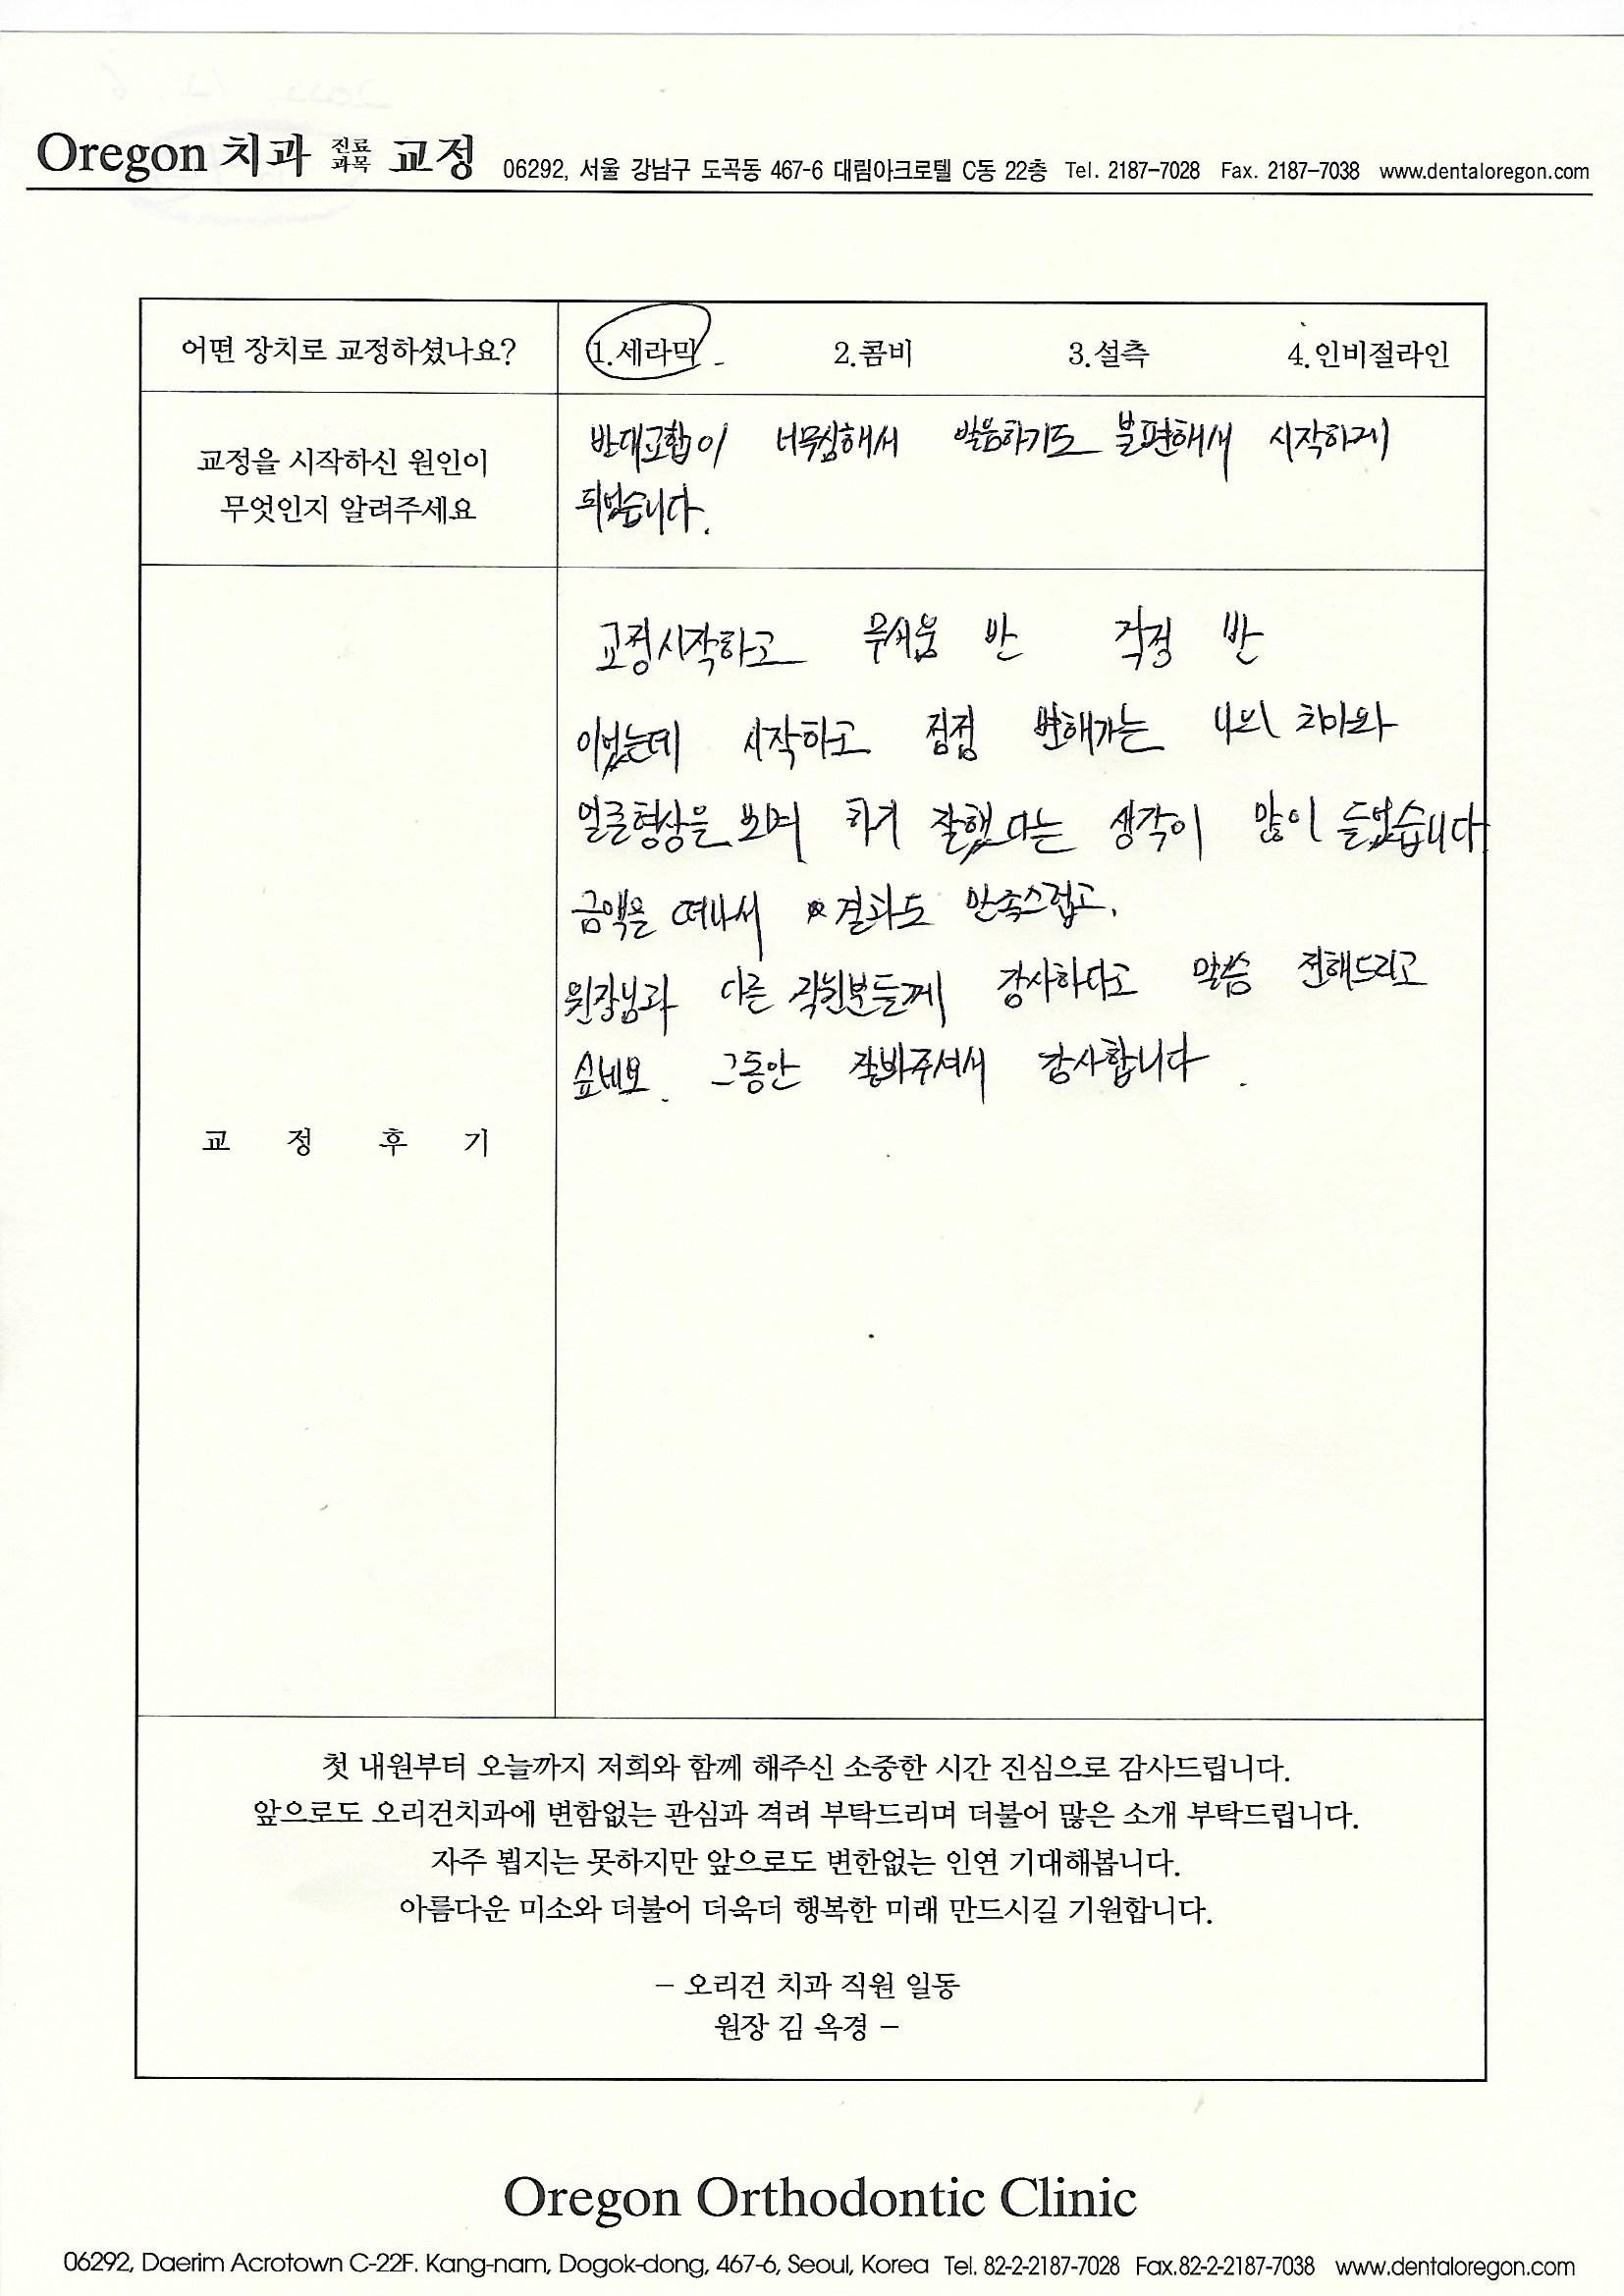 Oregon 치과 진료과목 교정 06292, 서울 강남구 도곡동 467-6 대림아크로텔 C동 22층 Tel. 2187-7028 Fax. 2187-7038 www.dentaloregon.com
어떤 장치로 교정하셨나요? 1.세라믹 2.콤비 3.설측 4.인비절라인
교정을 시작하신 원인이
무엇인지 알려주세요
반대교합이 너무심해서 발음하기도 불편해서 시작하게
되었습니다.
교 정 후 기
교정시작하고 무서움 반 걱정 반
이었는데 시작하고 점점 변해가는 나의 치아와
얼굴형상을 보며 하기 잘했다는 생각이 많이 들었습니다
금액을 떠나서 결과도 만족스럽고,
원장님과 다른 직원분들께 감사하다고 말씀 전해드리고
싶네요. 그동안 잘봐주셔서 감사합니다.
첫 내원부터 오늘까지 저희와 함께 해주신 소중한 시간 진심으로 감사드립니다.
앞으로도 오리건치과에 변함없는 관심과 격려 부탁드리며 더불어 많은 소개 부탁드립니다.
자주 뵙지는 못하지만 앞으로도 변한없는 인연 기대해봅니다.
아름다운 미소와 더불어 더욱더 행복한 미래 만드시길 기원합니다.
– 오리건 치과 직원 일동
원장 김 옥경 –
Oregon Orthodontic Clinic
06292, Daerim Acrotown C-22F. Kang-nam, Dogok-dong, 467-6, Seoul, Korea Tel. 82-2-2187-7028 Fax.82-2-2187-7038 www.dentaloregon.com